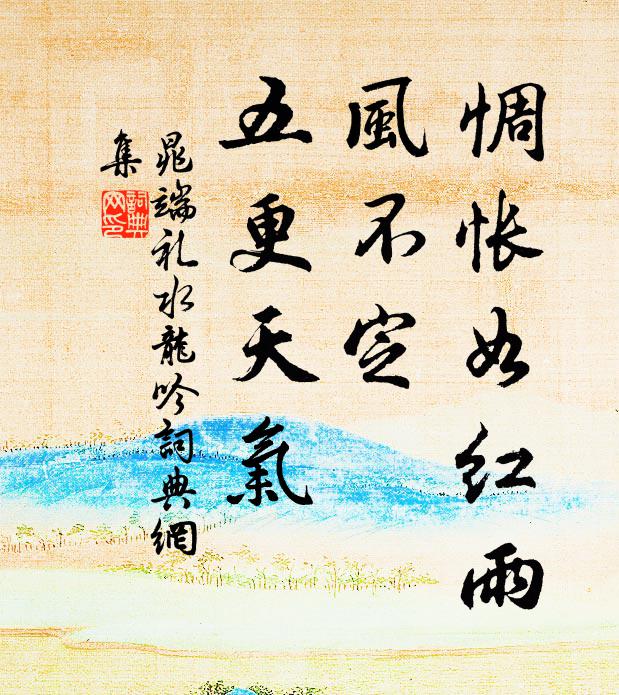 惆悵如紅雨
風不定
五更天氣
晁端礼水龍吟詞典網
集
詞典
网印